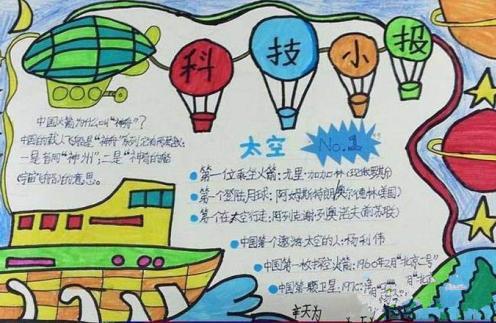 科技小报
中国火箭为什么叫"神舟"?
中国的载人飞船是"神舟"系列,它有两意思:
一是音同"神州";二是"神奇的船
宇宙飞船)的意思。
太空
No.1
第一位乘坐火箭:尤里·加加林
第一个登陆月球:阿姆斯特朗
第一个在太空行走:阿列克谢·列昂诺夫
中国第一个遨游太空的人:杨利伟
中国第一枚探空火箭:1960年2月"北京二号"
中国第一颗卫星:1970